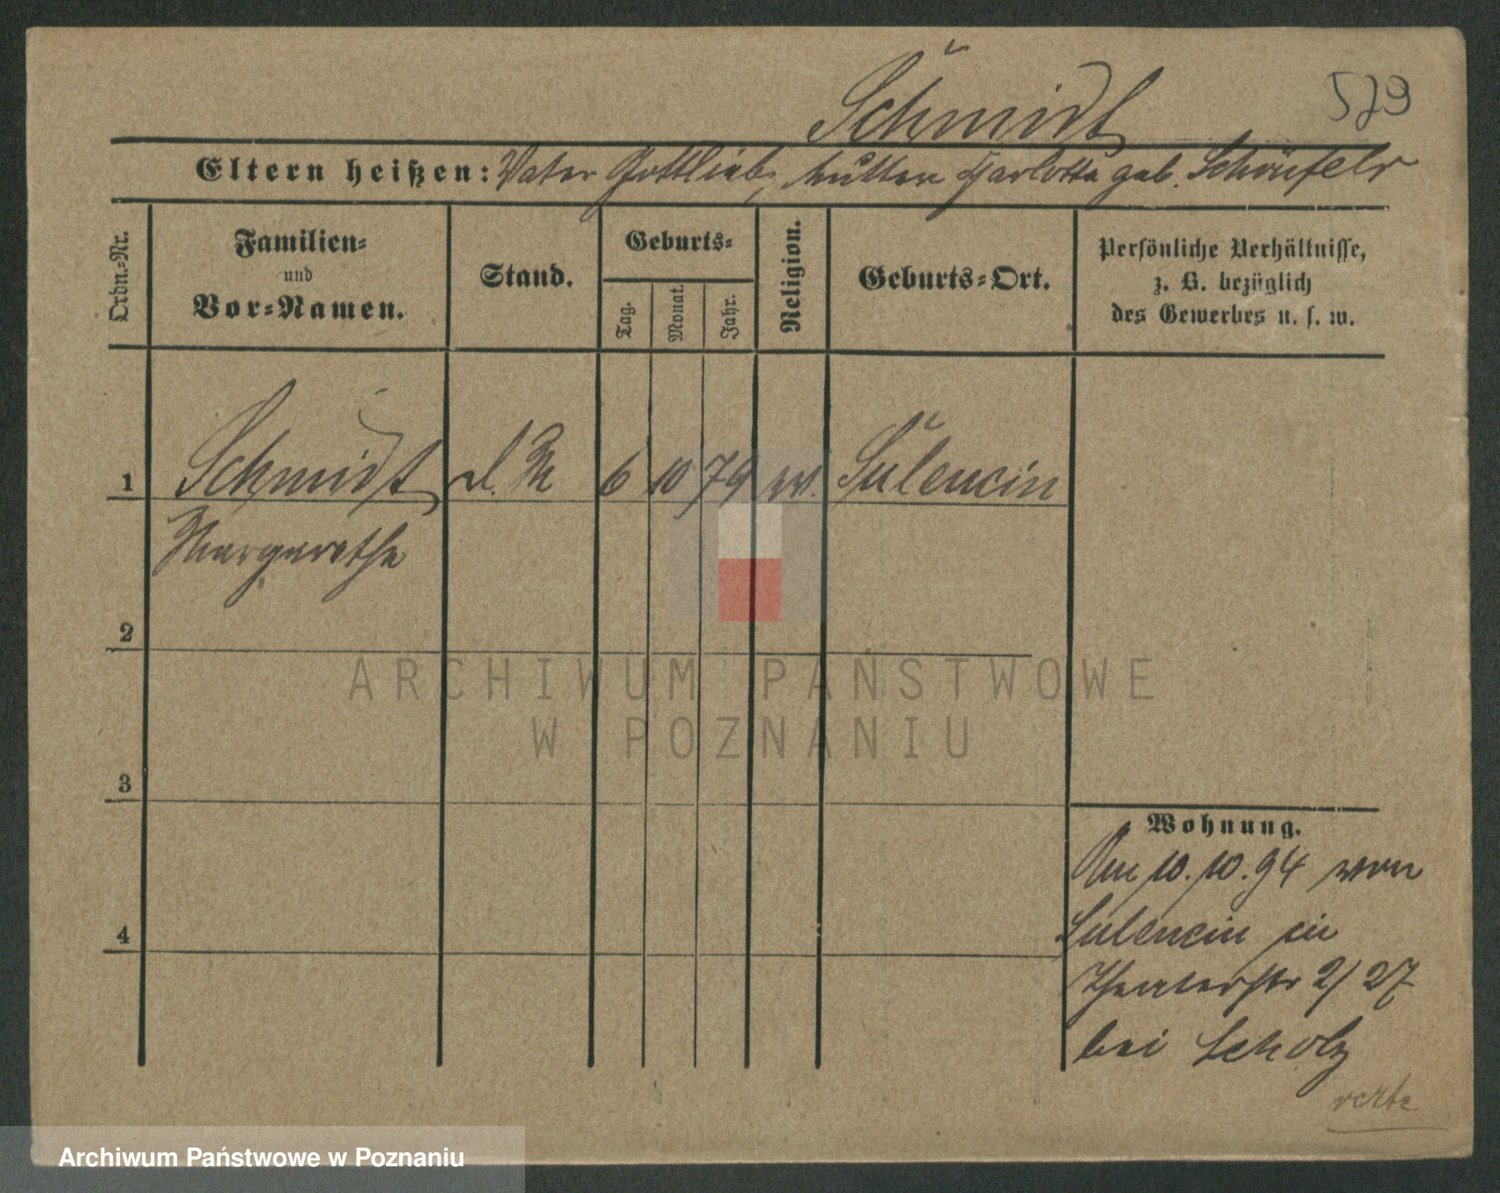 Schmidt
579
Eltern heißen: Vater Gottlieb, Mutter Charlotte geb. Schönfeld
Ordn.-Nr.
Familien-
und
Vor-Namen.
Stand.
Geburts-
Tag.
Monat.
Jahr.
Religion.
Geburts-Ort.
Persönliche Verhältnisse,
z. B. bezüglich
des Gewerbes u. s. w.
1 Schmidt d. M 6 10 79 ev. Sulencin
Margarethe
2
3
4
Wohnung.
Am 10.10.94 von
Sulencin in
Theaterstr 2/27
bei Scholz
verte
ARCHIWUM PAŃSTWOWE
W POZNANIU
Archiwum Państwowe w Poznaniu